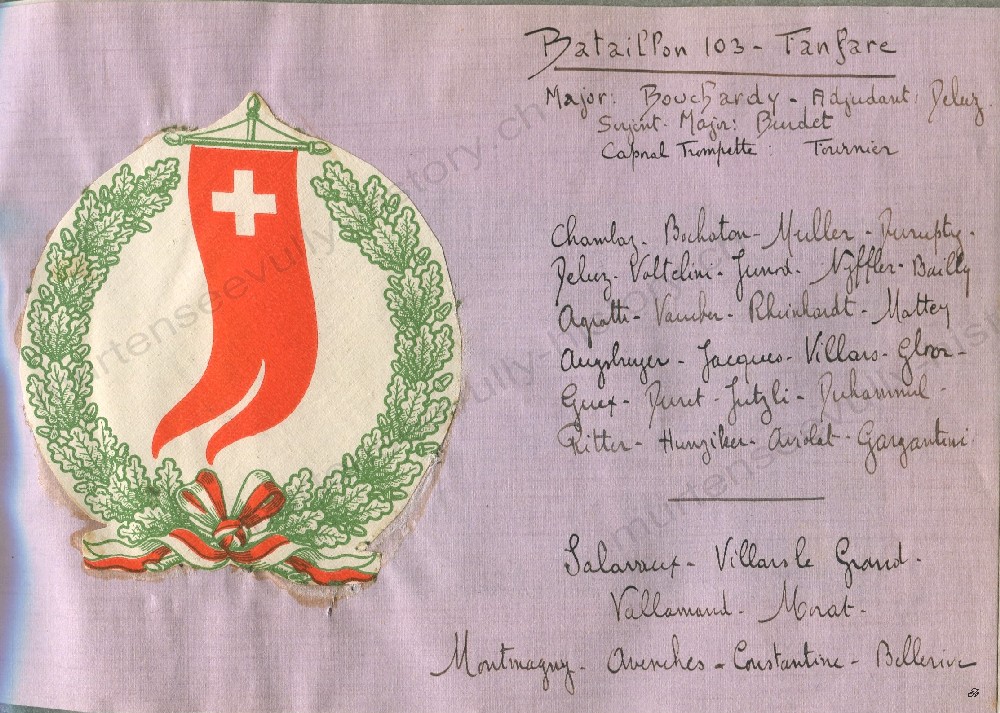 Bataillon 103 - Fanfare
Major: Bouchardy - Adjudant: Deluz
Sergent-Major: Burdet
Caporal Trompette: Tournier
Chamlaz - Bochaton - Muller -
Deluz - Voltelini - Junod - Nyffler - Bailly
Agratti - Vaucher - Rheinhardt - Mattey
Augsburger - Jacques - Villars - Gloor -
Guex - Duret - Jutzli - Duhammel -
Ritter - Hunziker - Airolat - Gargantini
Salavaux - Villars le Grand -
Vallamand - Morat -
Montmagny - Avenches - Constantine - Bellerive
murtenseevully-history.ch